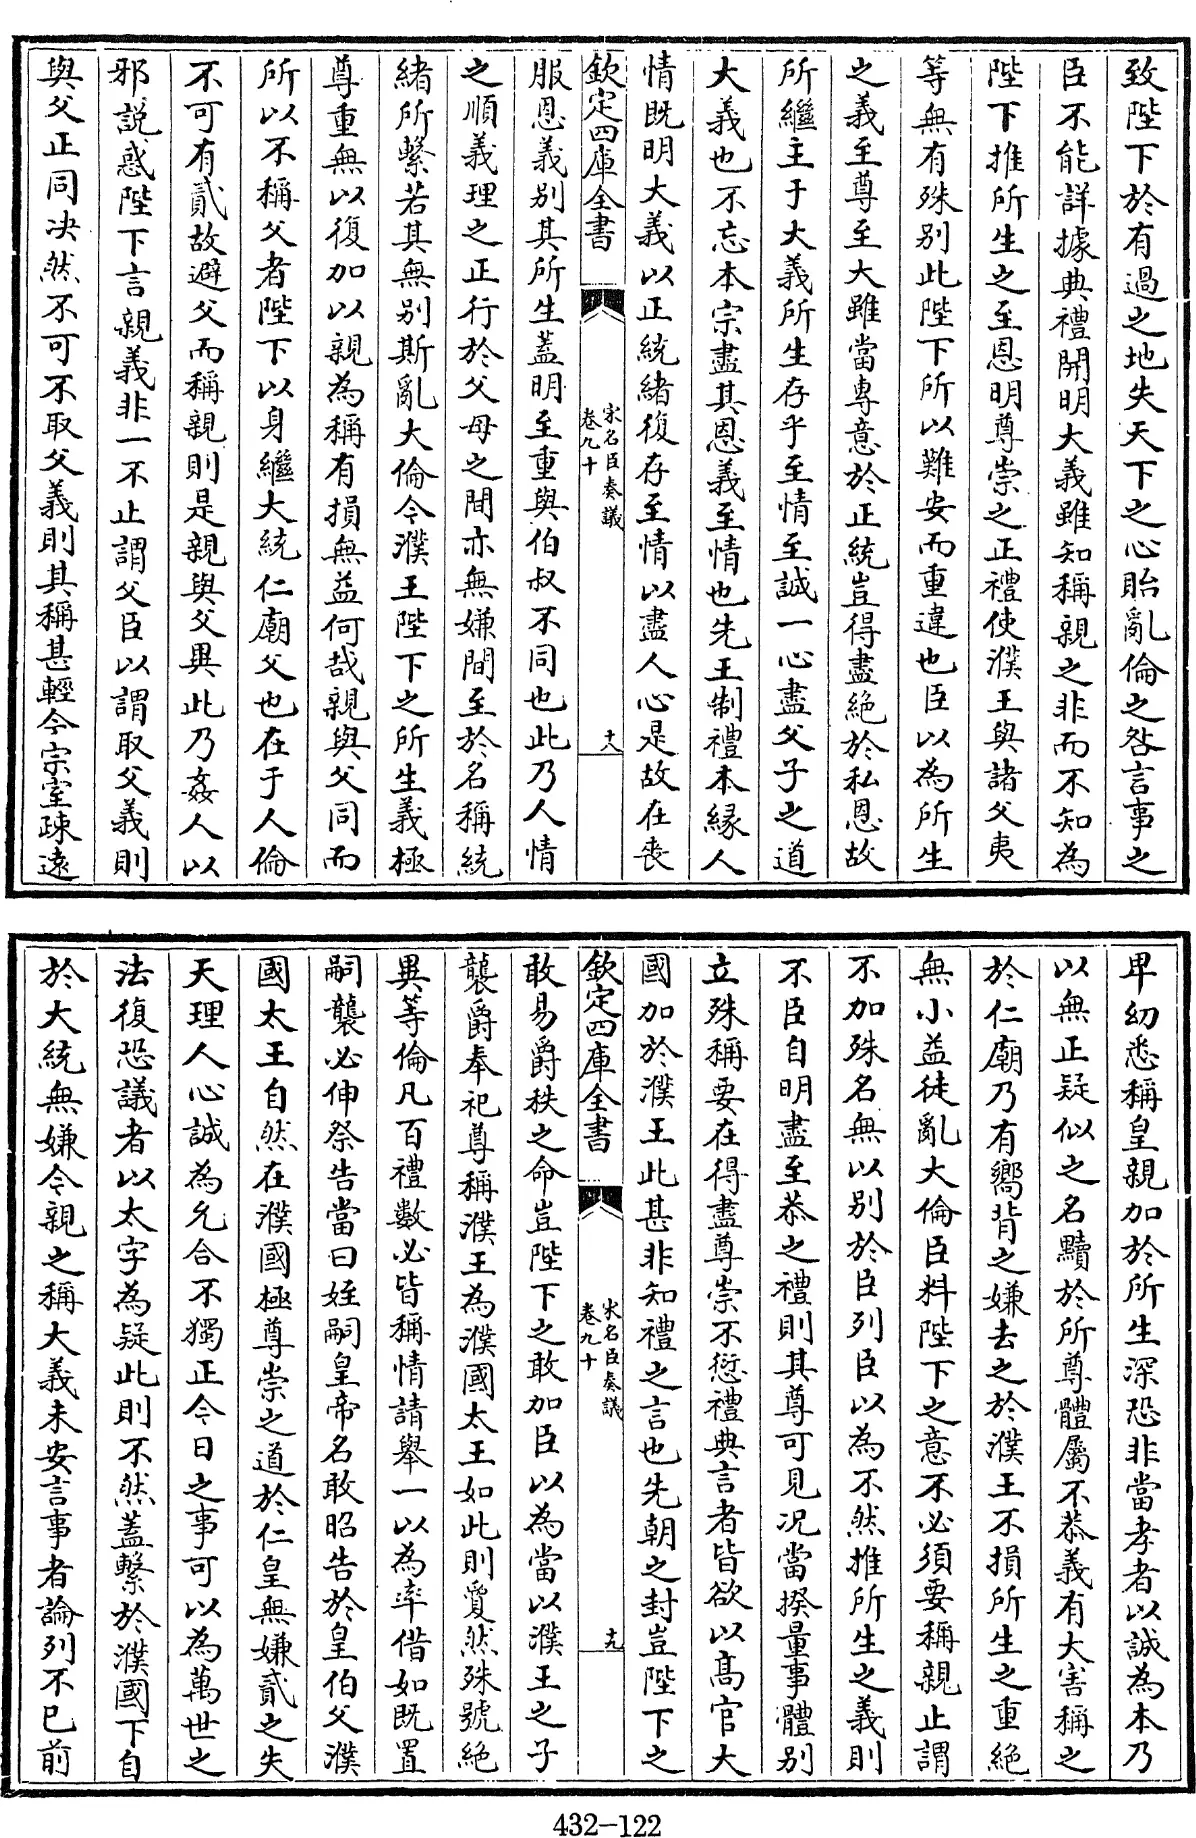 致陛下於有過之地失天下之心貽亂倫之咎言事之
臣不能詳據典禮開明大義雖知稱親之非而不知為
陛下推所生之至恩明尊崇之正禮使濮王與諸父夷
等無有殊別此陛下所以難安而重違也臣以為所生
之義至尊至大雖當專意於正統豈得盡絕於私恩故
所繼主于大義所生存乎至情至誠一心盡父子之道
大義也不忘本宗盡其恩義至情也先王制禮本縁人
情既明大義以正統緒復存至情以盡人心是故在喪
欽定四庫全書
宋名臣奏議
卷九十
十八
服恩義別其所生蓋明至重與伯叔不同也此乃人情
之順義理之正行於父母之間亦無嫌間至於名稱統
緒所繫若其無別斯亂大倫今濮王陛下之所生義極
尊重無以復加以親為稱有損無益何哉親與父同而
所以不稱父者陛下以身繼大統仁廟父也在于人倫
不可有貳故避父而稱親則是親與父異此乃姦人以
邪説惑陛下言親義非一不止謂父臣以謂取父義則
與父正同决然不可不取父義則其稱甚輕今宗室疎遠
卑幼悉稱皇親加於所生深恐非當孝者以誠為本乃
以無正疑似之名黷於所尊體屬不恭義有大害稱之
於仁廟乃有嚮背之嫌去之於濮王不損所生之重絕
無小益徒亂大倫臣料陛下之意不必須要稱親止謂
不加殊名無以別於臣列臣以為不然推所生之義則
不臣自明盡至恭之禮則其尊可見况當揆量事體別
立殊稱要在得盡尊崇不愆禮典言者皆欲以高官大
國加於濮王此甚非知禮之言也先朝之封豈陛下之
欽定四庫全書
宋名臣奏議
卷九十
十九
敢易爵秩之命豈陛下之敢加臣以為當以濮王之子
襲爵奉祀尊稱濮王為濮國太王如此則夐然殊號絕
異等倫凡百禮數必皆稱情請舉一以為率借如既置
嗣襲必伸祭告當曰姪嗣皇帝名敢昭告於皇伯父濮
國太王自然在濮國極尊崇之道於仁皇無嫌貳之失
天理人心誠為允合不獨正今日之事可以為萬世之
法復恐議者以太字為疑此則不然蓋繫於濮國下自
於大統無嫌令親之稱大義未安言事者論列不已前
432-122